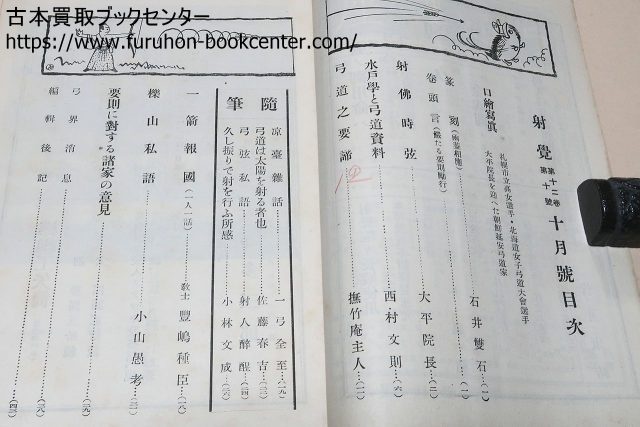 古本買取ブックセンター
https://www.furuhon-bookcenter.com/
射覺 第十二卷 第十號 十月號目次
口繪寫眞
札幌市立高女選手・北海道女子弓道大會選手
大平院長を迎へた朝鮮延安弓道家
篆刻(兩葢相應) 石井雙石…(一)
卷頭言(嚴たる要則勵行) 大平院長…(一)
射佛時弦
水戸學と弓道資料 西村文則…(六)
弓道之要諦 撫竹庵主人…(一一)
隨筆
凉臺雜話 一弓全至…(一九)
弓道は太陽を射る者也 佐藤春吉…(二三)
弓弦私語 射人醉醒…(二四)
久し振りで射を行ふ所感 小林文成…(二六)
一箭報國(一人一話) 敎士 豐嶋種臣…(一〇)
櫟山私語 小山愚考…(三一)
要則に對する諸家の意見 …(三九)
弓界消息 …(三六)
編輯後記 …(四三)